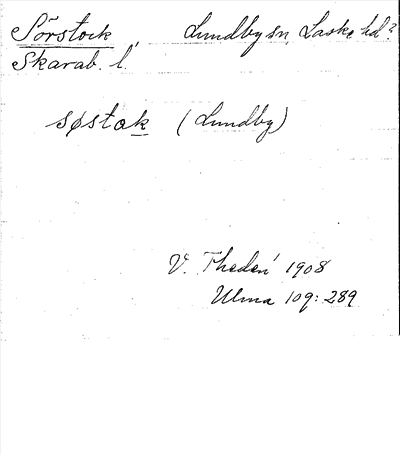 Sörstock, Lundby sn, Laske hd?
Skarab. l.
søstak (Lundby)
V. Thedén 1908
Ulma 109:289